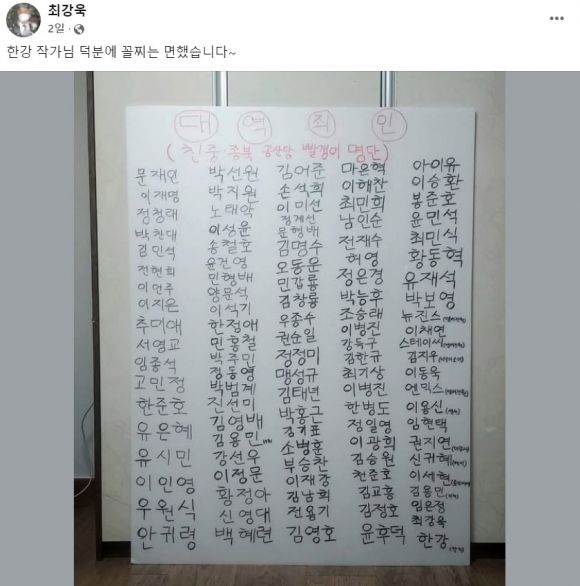 최강욱
2일
한강 작가님 덕분에 꼴찌는 면했습니다~
대 역 죄 인
(친중·종북 공산당 빨갱이 명단)
문재인
이재명
정청래
박찬대
김민석
전현희
이언주
이지은
추미애
서영교
임종석
고민정
한준호
유은혜
유시민
이인영
우원식
안귀령
박선원
박지원
노태악
이성윤
송철호
윤건영
민형배
양문석
이석기
한정애
민홍철
박주민
정동영
박범계
진선미
김영배
김용민
강선우
이정문
황정아
신영대
백혜련
김어준
손석희
이미선
정계선
문형배
김명수
오동운
민갑룡
김창룡
우종수
권순일
정정미
맹성규
김태년
박홍근
김기표
소병훈
부승찬
이재강
김남희
전용기
김영호
마은혁
이해찬
최민희
남인순
전재수
허영
정은경
박능후
조승래
이병진
강득구
김한규
최기상
이병진
한병도
정일영
이광희
김승원
천준호
김교흥
김정호
윤후덕
아이유
이승환
봉준호
윤민석
최민식
황동혁
유재석
박보영
뉴진스
이채연
스테이씨
김지우
이동욱
엔믹스
이용신
임현택
권지연
신귀혜
이세현
김용민
임은정
최강욱
한강